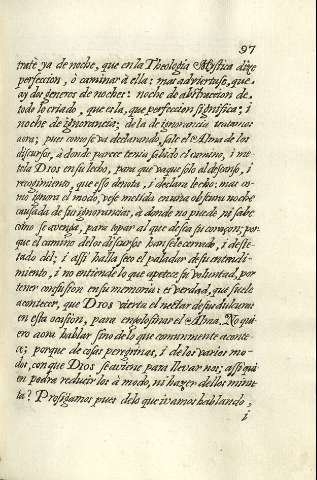 97
trate ya de noche, que en la Theologia Mystica dize
perfeccion, ò caminar à ella: mas adviertase, que
ay dos generos de noches: noche de abstraccion de
todo lo criado, que es la, que perfeccion significa; i
noche de ignorancia; de la de ignorancia tratamos
aora; pues como se va declarando, sale el Alma de los
discursos, à donde parece tenia sabido el camino, i me
tela Dios en su lecho, para que vaque solo al descanso, i
recogimiento, que esso denota, i declara lecho: mas co-
mo ignora el modo, vese metida en una obscura noche
causada de sus ignorancias, à donde no puede, ni sabe
cómo se avenga, para topar al que desea su coraçon; por-
que el camino de los discursos hansele cerrado, i deste-
tado del; i assi halla seco el paladar de su entendi-
miento, i no entiende lo que apetece su voluntad, por
tener confusion en su memoria: es verdad, que suele
acontecer, que Dios vierta el nectar de su dulçura
en esta ocasion, para engolosinar el Alma. No qui-
ero aora hablar sino de lo que comunmente aconte-
ce; porque de cosas peregrinas, i de los varios mo-
dos, con que Dios se aviene para llevarnos; assi qui
en podra reducirlos à modo, ni hazer dellos minu
ta? Prosigamos pues de lo que ivamos hablando,
i